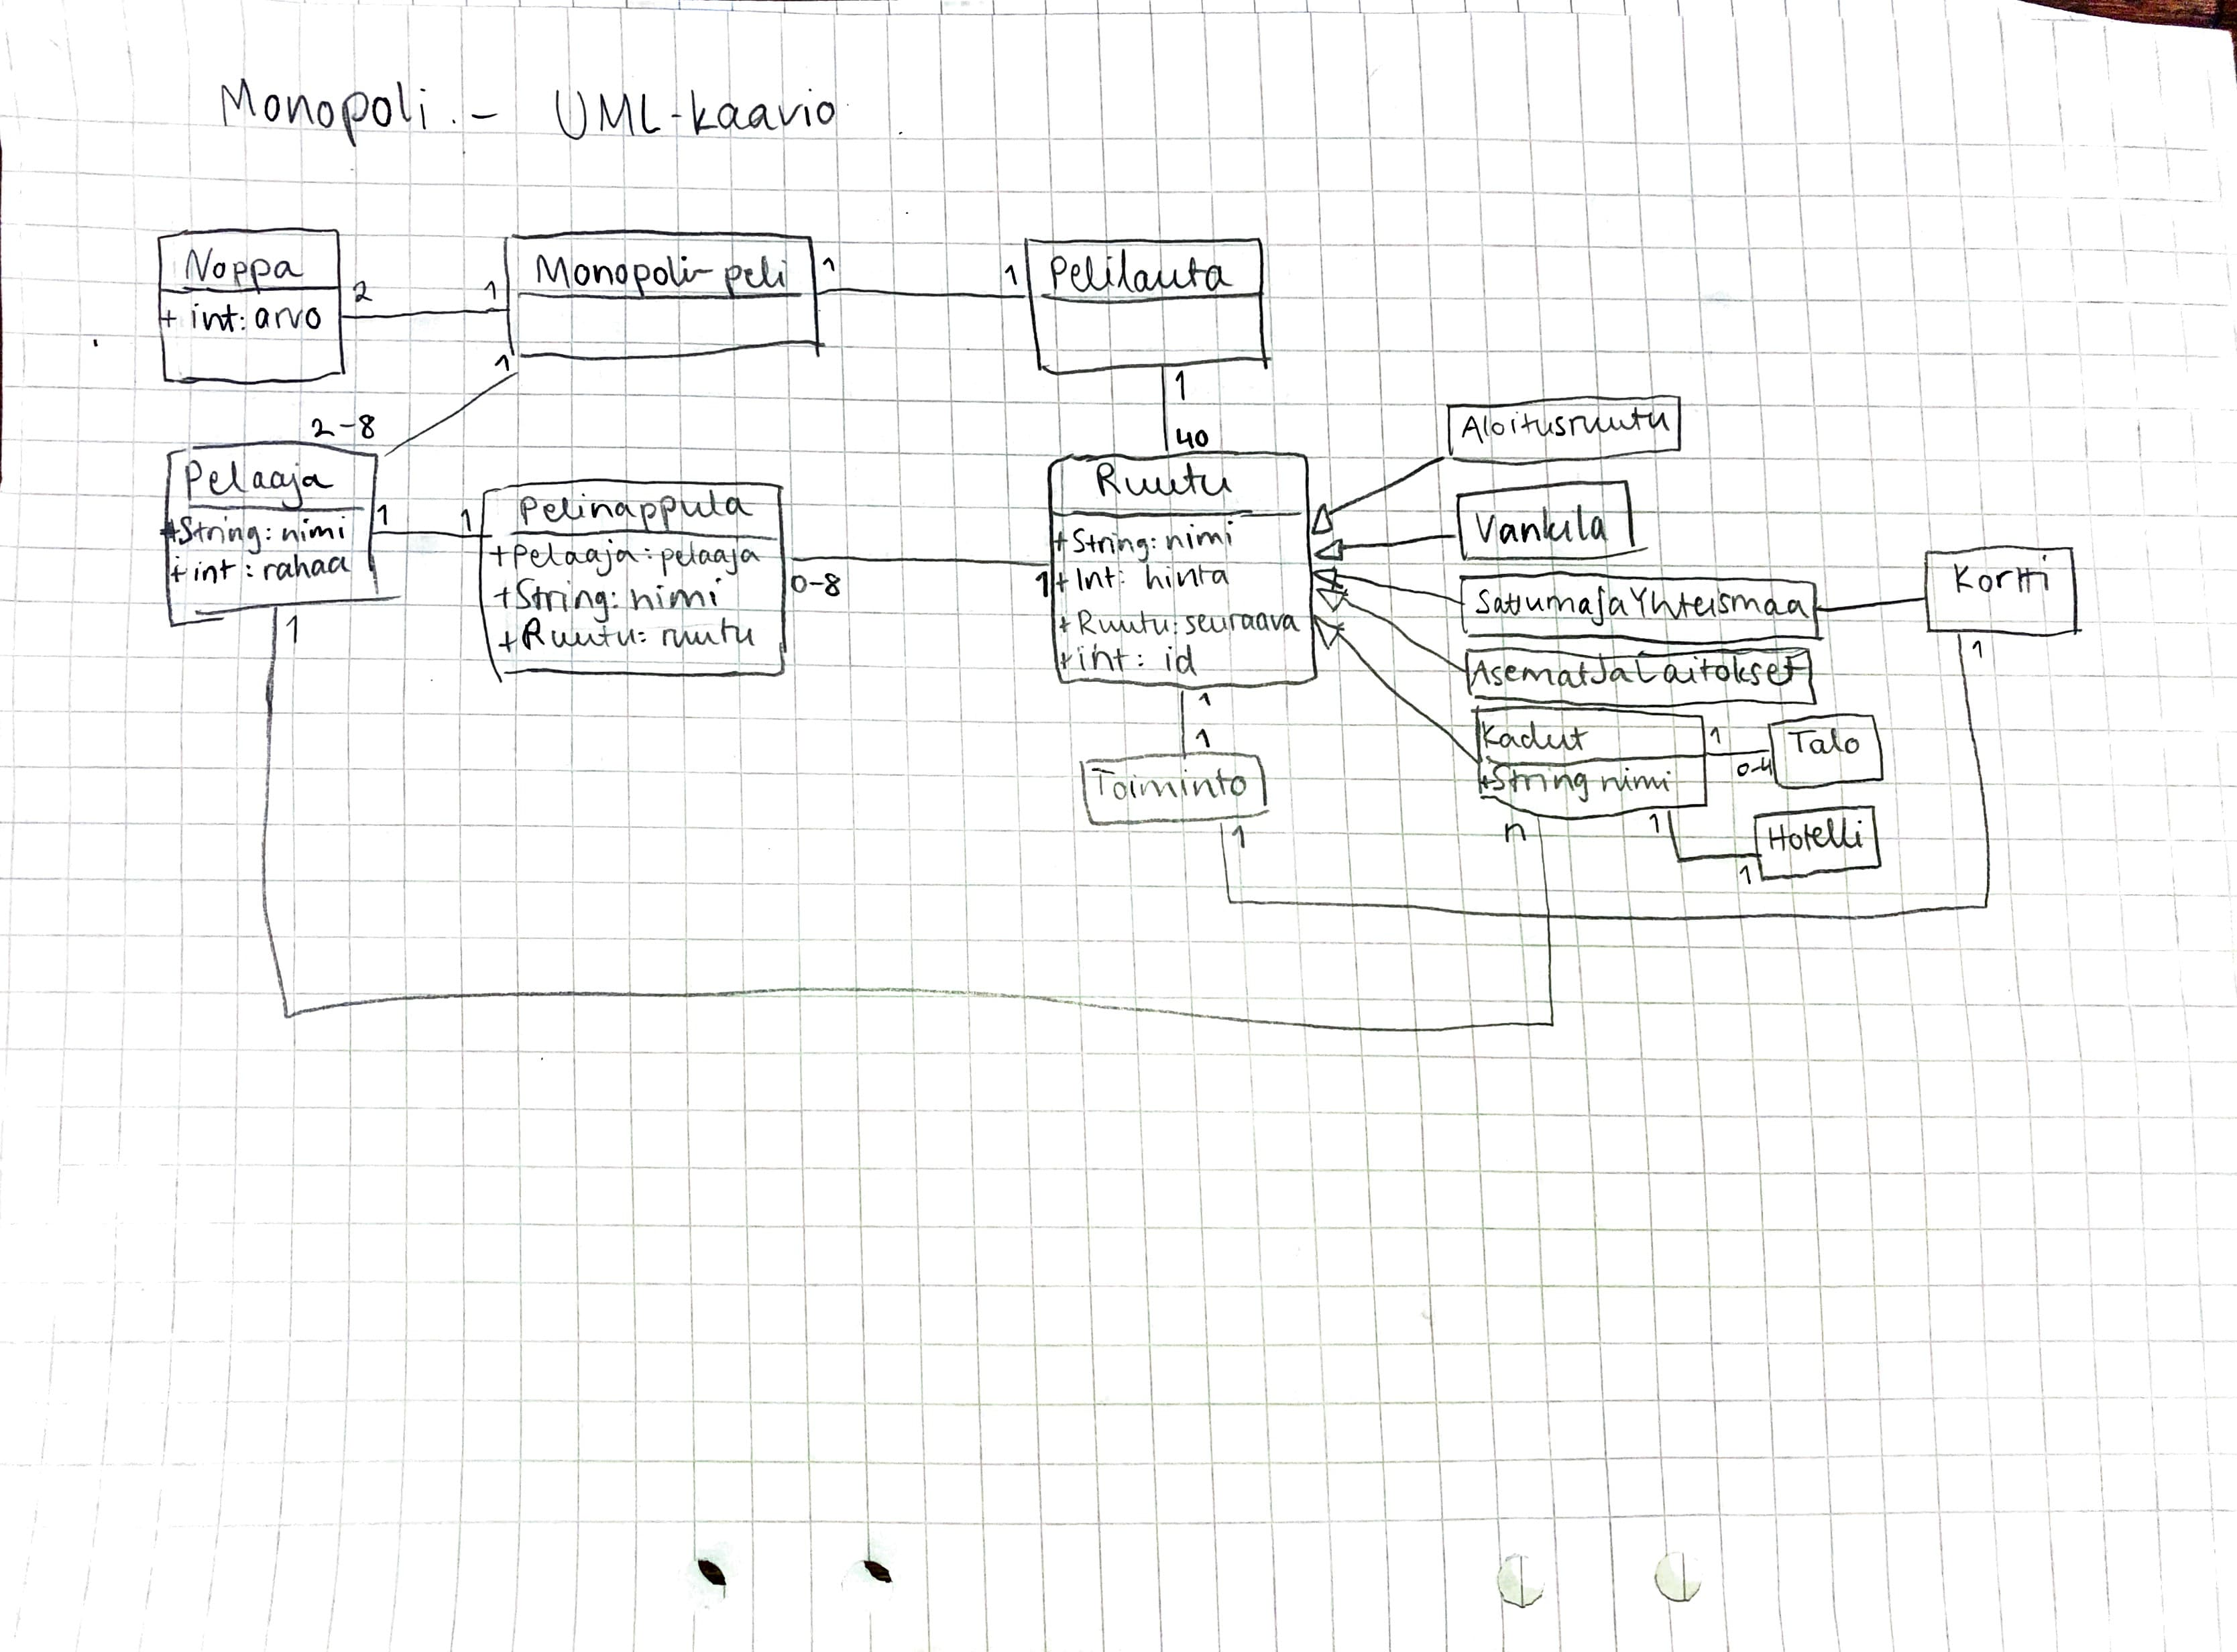 Monopoli - UML-kaavio
Noppa
+ int: arvo
2
1
Monopoli-peli
1
1
Pelilauta
1
2-8
1
40
Pelaaja
+String: nimi
+ int: rahaa
1
1
1
Pelinappula
+Pelaaja: pelaaja
+String: nimi
+Ruutu: ruutu
0-8
1
Ruutu
+String: nimi
+ Int: hinta
+ Ruutu: seuraava
+int: id
1
1
Toiminto
1
Aloitusruutu
Vankila
SattumajaYhteismaa
AsematJaLaitokset
Kadut
+String nimi
1
0-4
Talo
n
1
1
Hotelli
Kortti
1